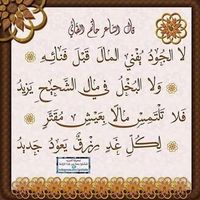 قال الشاعر حاتم الطائي
لَا الجُودُ يُفْنِي المَالَ قَبْلَ فَنَائِهِ
وَلَا البُخْلُ فِي مَالِ الشَّحِيحِ يَزِيدُ
فَلَا تَلْتَمِسْ مَالًا بِعَيْشٍ مُقَتَّرٍ
لِكُلِّ غَدٍ رِزْقٌ يَعُودُ جَدِيدُ